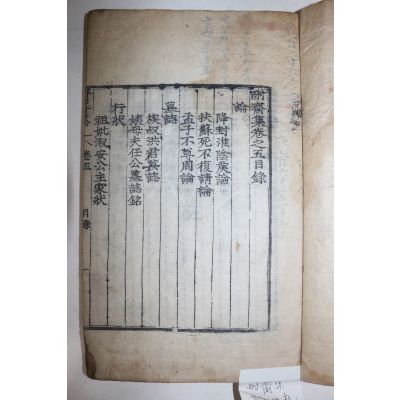 耐齋集卷之五目錄
論
降封淮陰侯論
扶蘇死不復請論
孟子不尊周論
墓誌
族叔洪君墓誌
姨母夫任公墓誌銘
行狀
祖妣淑安公主家狀
卷五
目錄